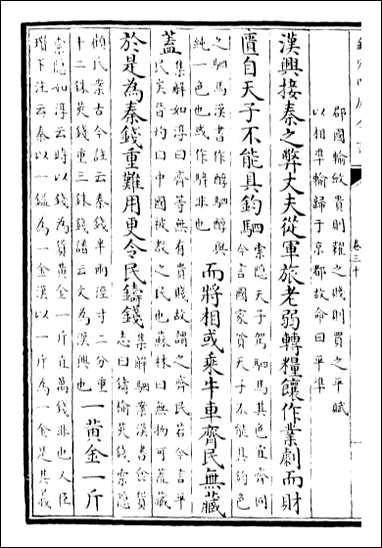 卷三十
郡國輸斂貴則糶之賤則買之平賦
以相準輸歸于京都故命曰平準
漢興接秦之弊丈夫從軍旅老弱轉糧饟作業劇而財
匱自天子不能具鈞駟
索隱天子駕駟馬其色宜齊同
今言國家貧天子不能具鈞色
之駟馬漢書作醇駟醇與
純一色也或作騂非也
而將相或乘牛車齊民無藏
蓋
集解如淳曰齊等無有貴賤故謂之齊民若今言平
民矣晉灼曰中國被教之民也蘇林曰無物可蓋藏
於是為秦錢重難用更令民鑄錢
集解駰案漢書食貨
志曰鑄榆莢錢索隱
顧氏案古今註云秦錢半兩徑寸二分重
十二銖莢錢重三銖錢譜云文為漢興也
一黃金一斤
索隱如淳云時以錢為貨黃金一斤直萬錢非也又臣
瓚下注云秦以一鎰為一金漢以一斤為一金是其義